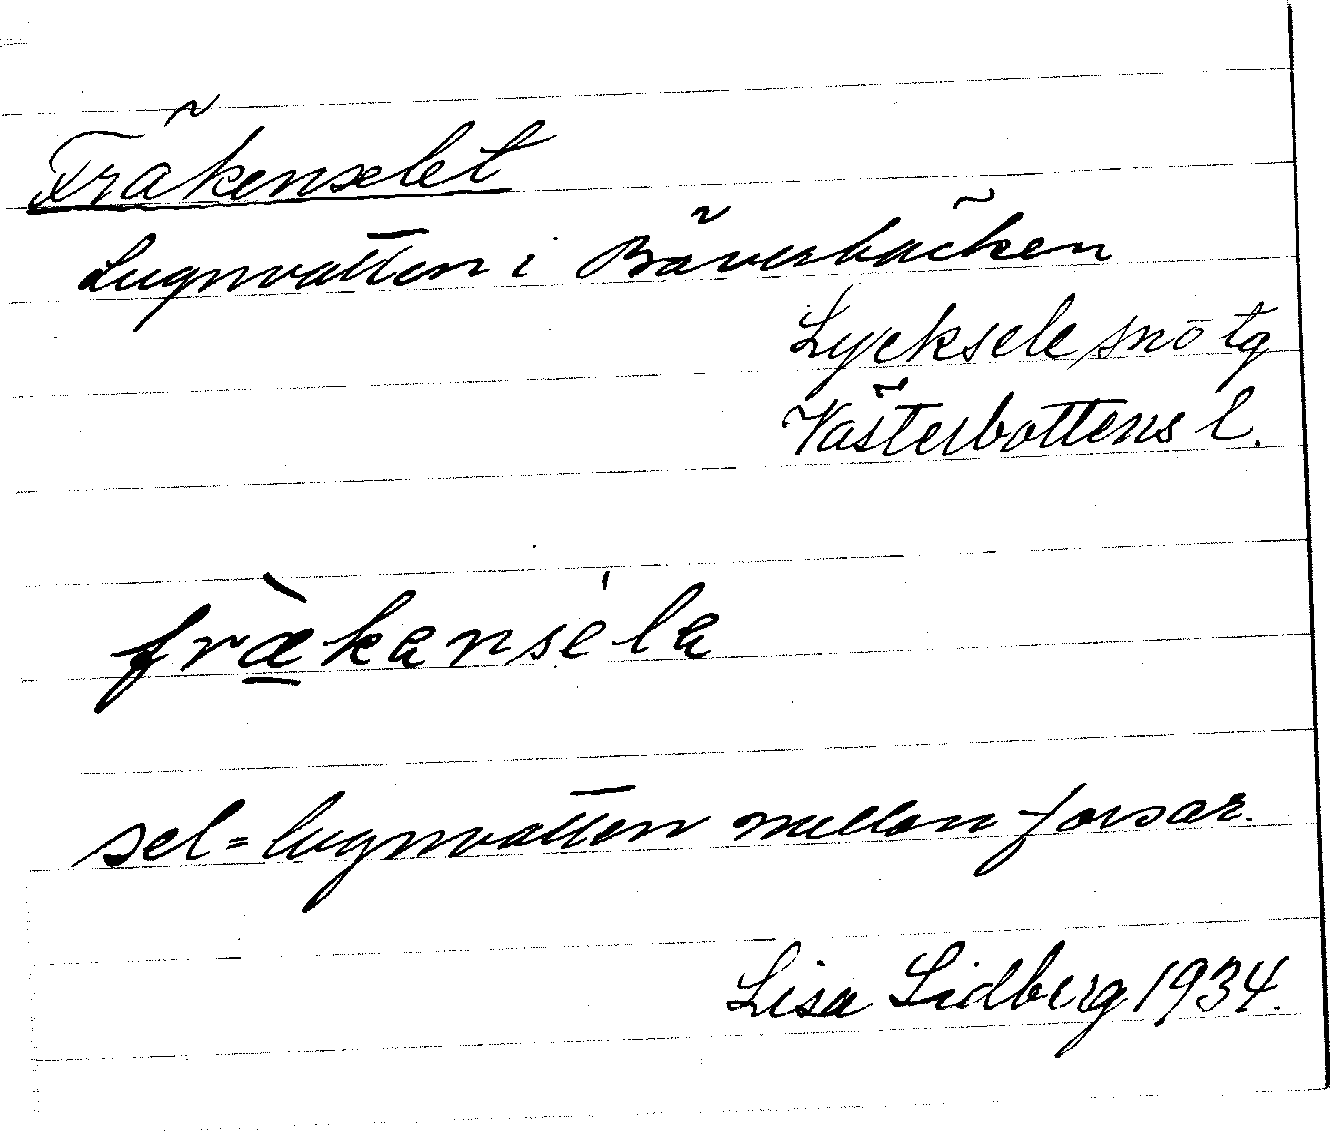 Fräkenselet
Lugnvatten i Bäverbäcken
Lycksele snö tg
Västerbottens l.
fræ̀kanséla
sel = lugnvatten mellan forsar.
Lisa Lidberg 1934.